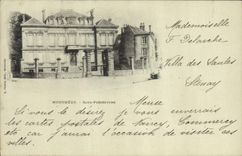 MONTMÉDY. — SOUS-PRÉFECTURE
Mademoiselle
F. Delarche
Villa des Saules
Stenay
Meuse
Si vous le désirez je vous enverrais
les cartes postales de Nancy, Commercy
etc car j'aurai l'occasion de visiter ces
villes.